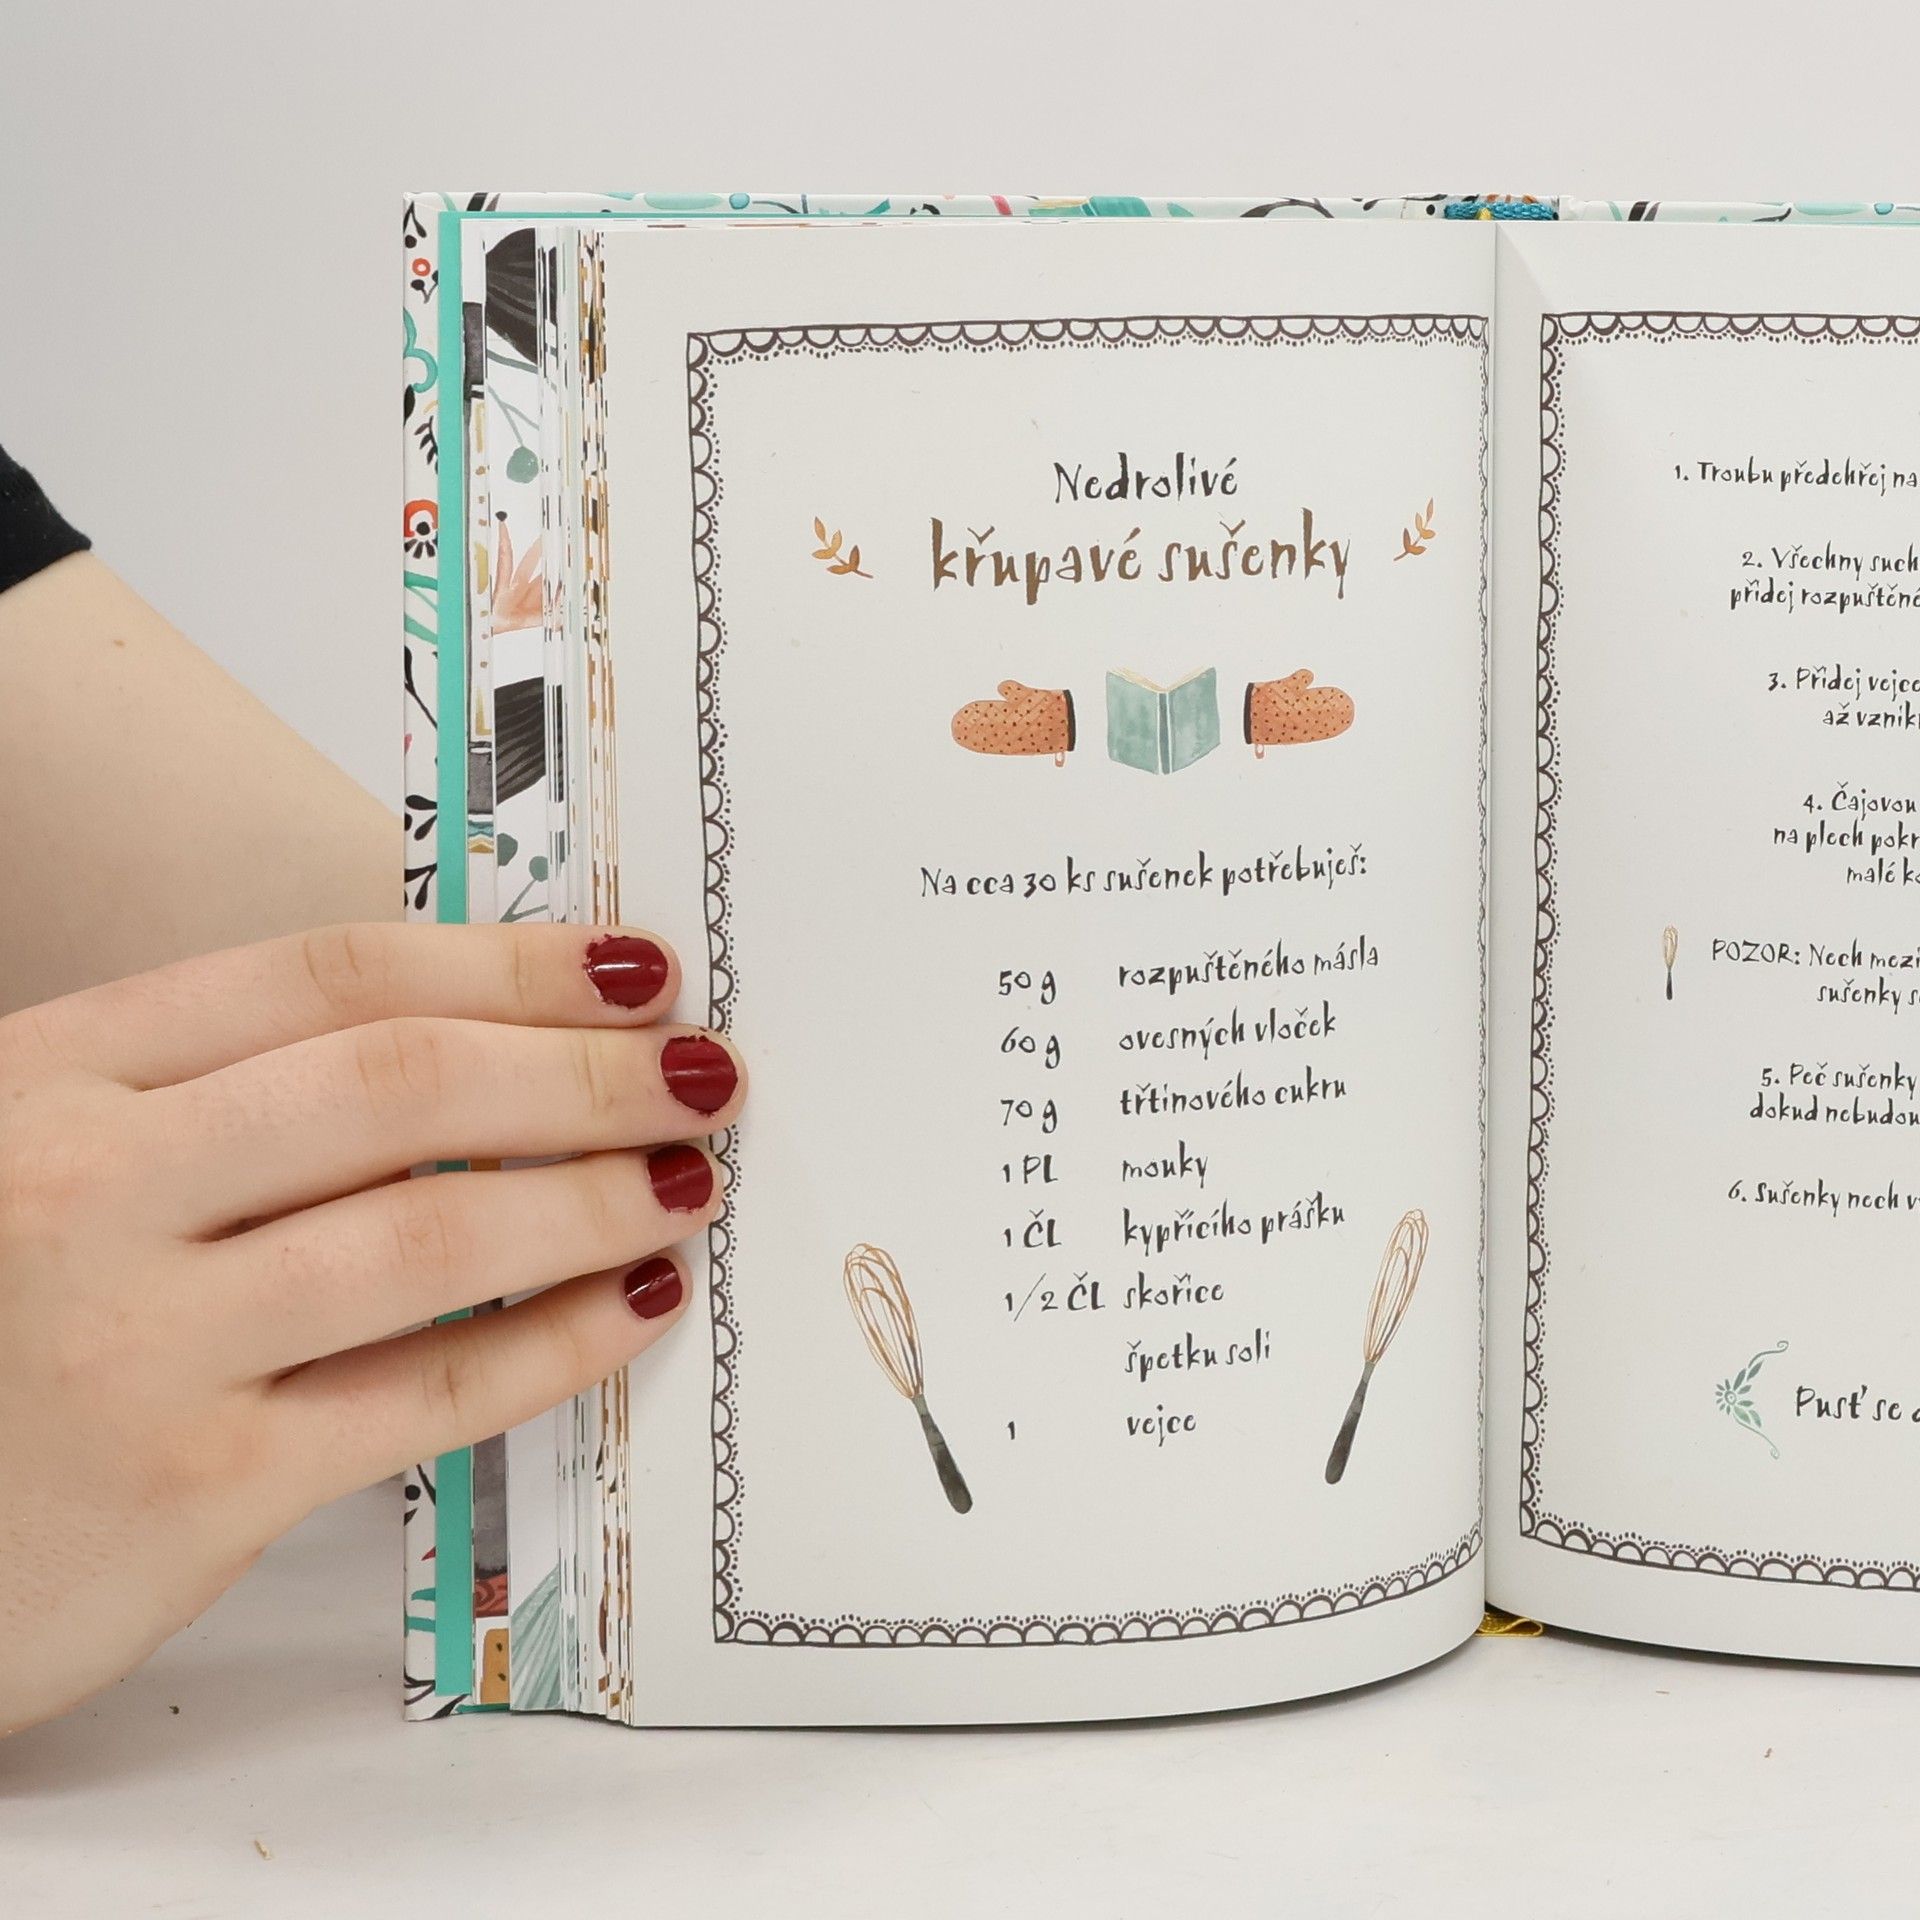 Nedrolivé
křupavé sušenky
Na cca 30 ks sušenek potřebuješ:
50 g rozpuštěného másla
60 g ovesných vloček
70 g třtinového cukru
1 PL mouky
1 ČL kypřícího prášku
1/2 ČL skořice
špetku soli
1 vejce
1. Troubu předehřej na
2. Všechny such
přidej rozpuštěné
3. Přidej vejce
až vznik
4. Čajovou
na plech pokr
malé
POZOR: Nech mezi
sušenky
5. Peč sušenky
dokud nebudou
6. Sušenky nech
Pusť se